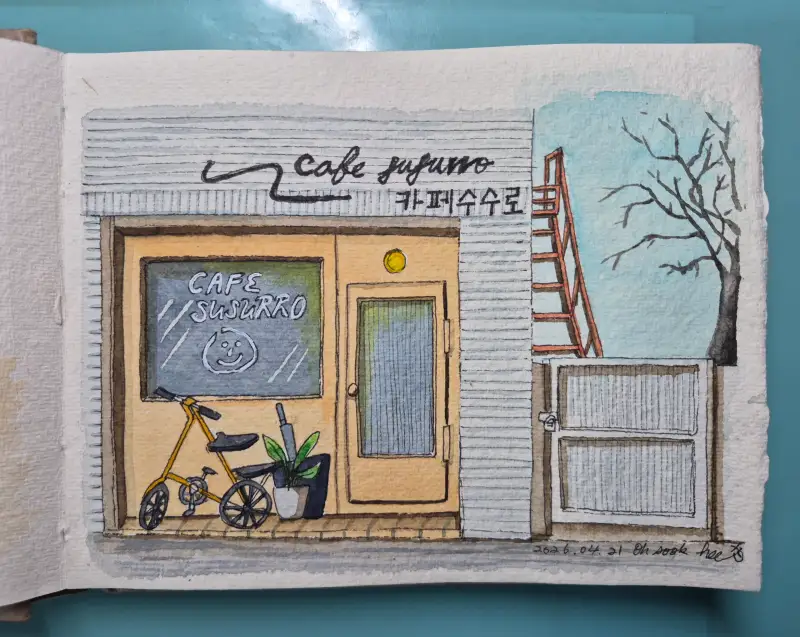 cafe susurro
카페수수로
CAFE
SUSURRO
2026.04.21 Oh sook hee